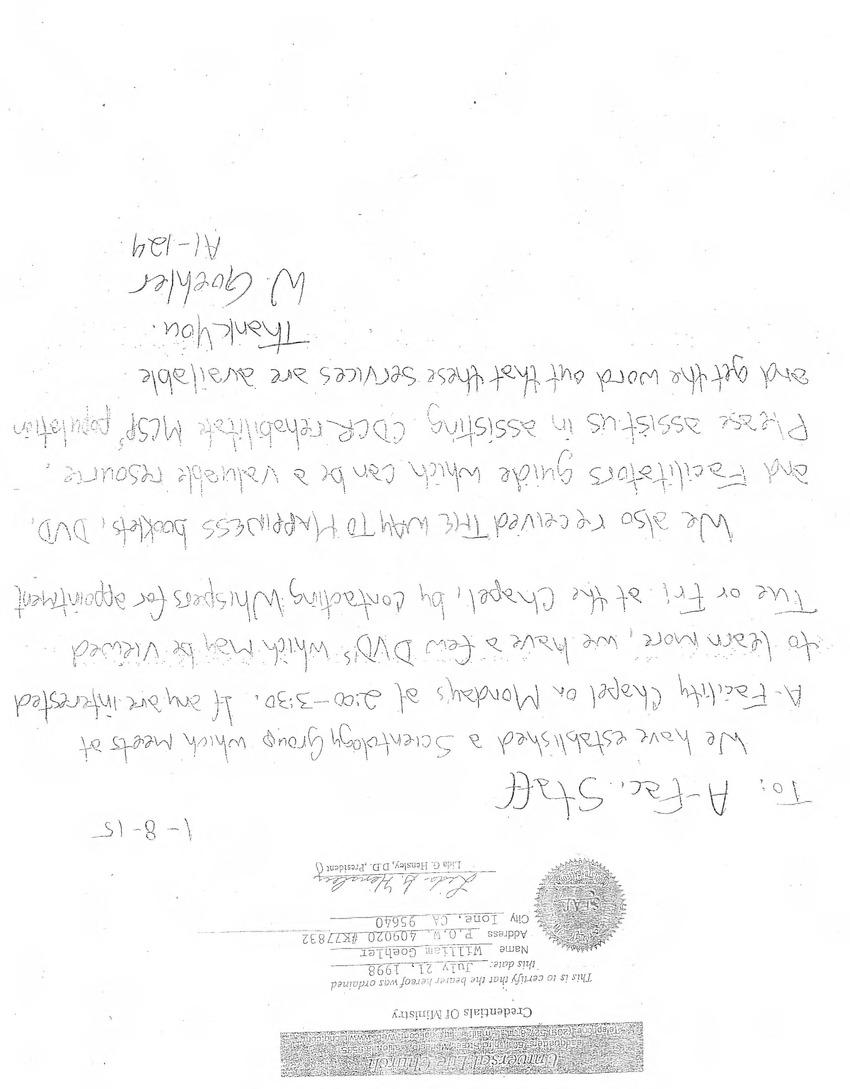 Universal Life Church
Credentials Of Ministry
This is to certify that the bearer hereof was ordained
this date: July 21, 1998
Name William Goehler
Address P.O.W. 409020 #K77832
City Ione, CA 95640
SEAL
Lida G. Hensley
Lida G. Hensley, D.D., President
1-8-15
To: A-Fac. Staff
We have established a Scientology Group which meets at
A-Facility Chapel on Mondays at 2:00-3:30. If any are interested
to learn more, we have a few DVD's which may be viewed
Tue or Fri at the Chapel, by contacting Whispers for appointment
We also received THE WAY TO HAPPINESS booklets, DVD,
and Facilitators guide which can be a valuable resource.
Please assist us in assisting CDCR rehabilitate MCSP's population
and get the word out that these services are available
Thank You.
W. Goehler
A1-124